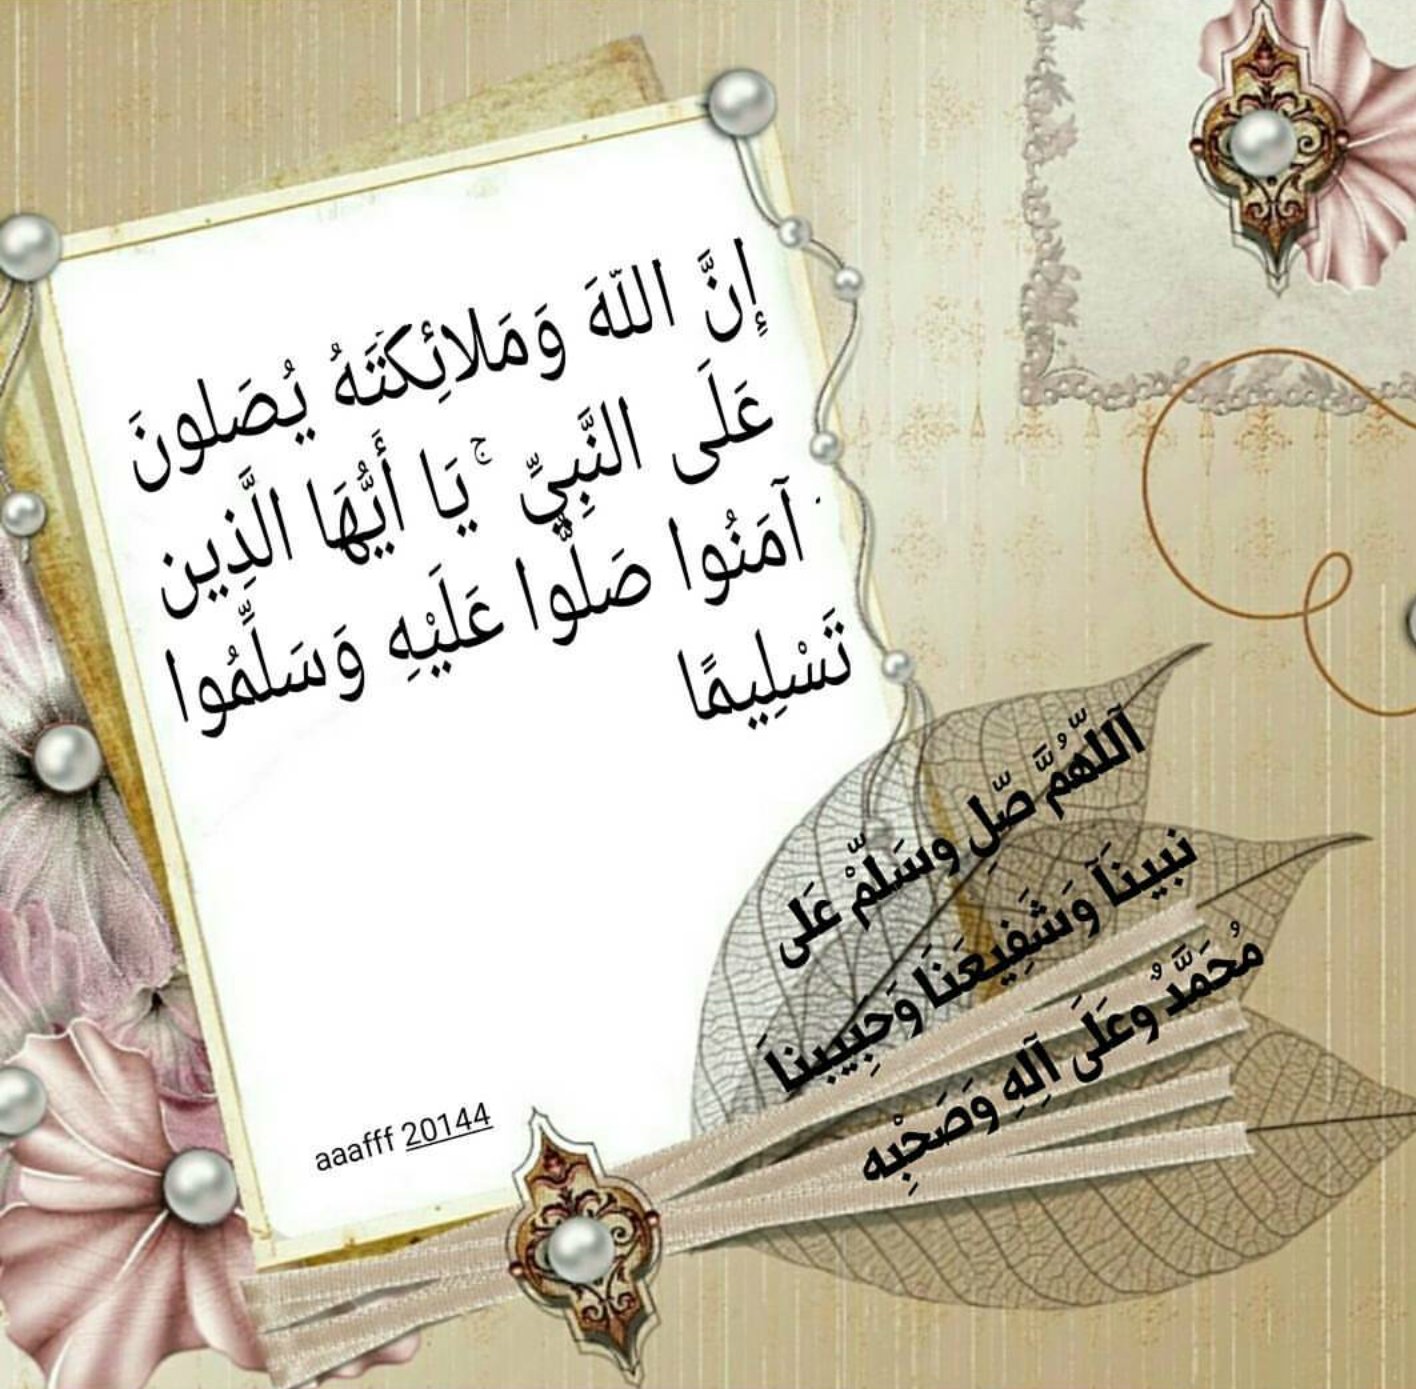 إِنَّ اللّهَ وَمَلائِكَتَهُ يُصَلونَ
عَلَى النَّبِيِّ ۚ يَا أَيُّهَا الَّذِين
آمَنُوا صَلُّوا عَلَيْهِ وَسَلِّمُوا
تَسْلِيمًا
آللّهُمَّ صّلِ وسَلّمْ عَلى
نبِينَآ وَشَفِيعَنَا وَحَبِيبِناَ
مُحَمَّدٌ وعَلَى آلِهِ وَصَحْبِه
aaafff 20144